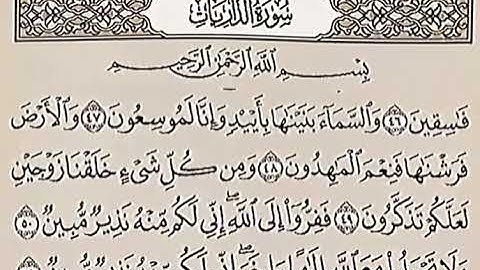 سُورَةُ الذَّارِيَاتِ
بِسْمِ اللَّهِ الرَّحْمَٰنِ الرَّحِيمِ
فَاسِقِينَ ٤٦ وَالسَّمَاءَ بَنَيْنَاهَا بِأَيْيْدٍ وَإِنَّا لَمُوسِعُونَ ٤٧ وَالْأَرْضَ
فَرَشْنَاهَا فَنِعْمَ الْمَاهِدُونَ ٤٨ وَمِن كُلِّ شَيْءٍ خَلَقْنَا زَوْجَيْنِ
لَعَلَّكُمْ تَذَكَّرُونَ ٤٩ فَفِرُّوا إِلَى اللَّهِ ۖ إِنِّي لَكُم مِّنْهُ نَذِيرٌ مُّبِينٌ ٥٠